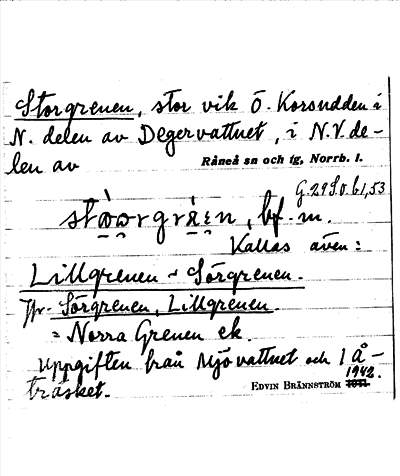 Storgrenen, stor vik Ö. Korsudden i
N. delen av Degervattnet, i N.V. de-
len av Råneå sn och tg, Norrb. l.
G. 29 S.O. 61,53
bf. m.
Kallas även:
Lillgrenen ~ Sörgrenen.
Jfr. Sörgrenen, Lillgrenen.
= Norra Grenen ek.
Uppgiften från Mjövattnet och 1 Å-
träsket. EDVIN BRÄNNSTRÖM 1942.